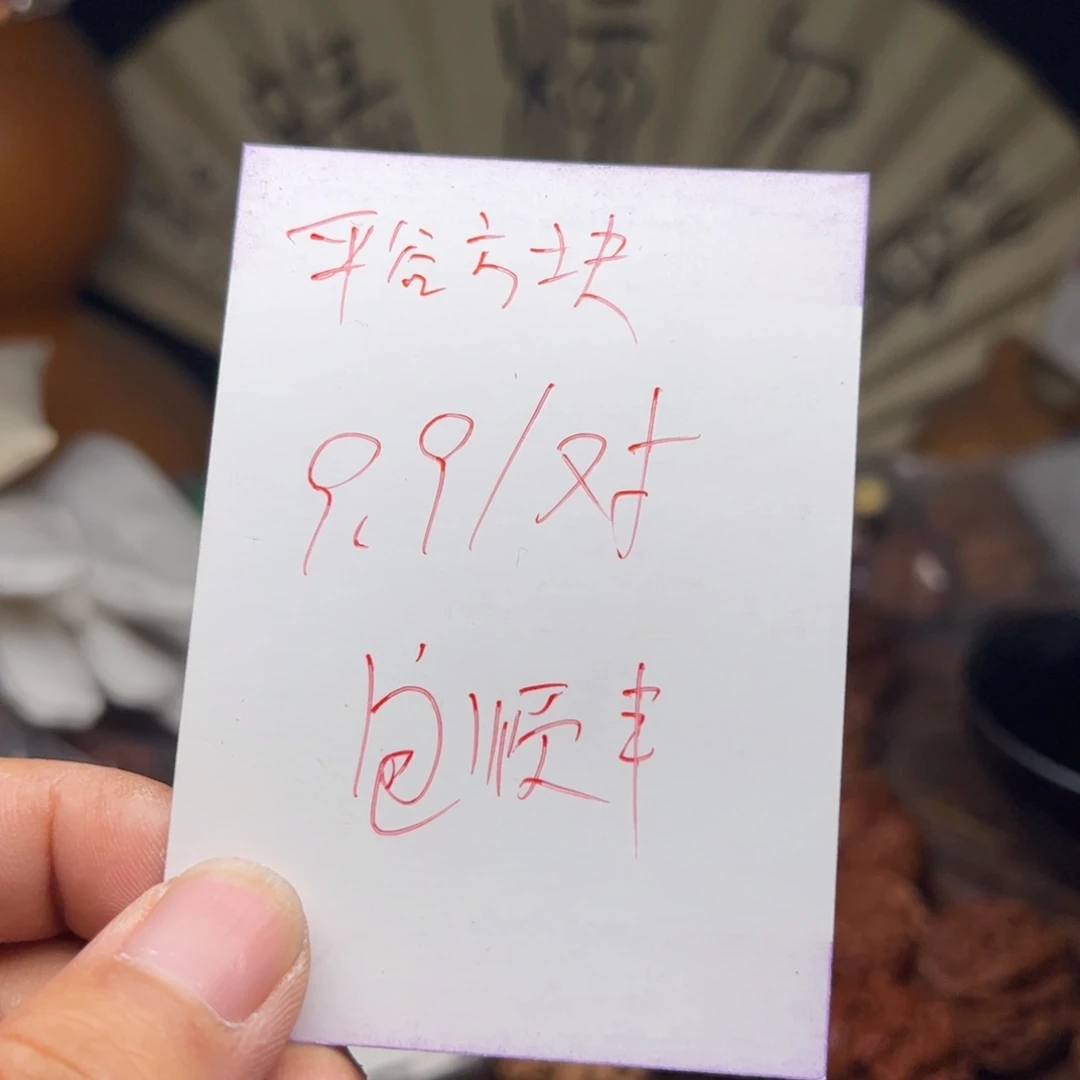 平谷方块
9.9/对
包顺丰